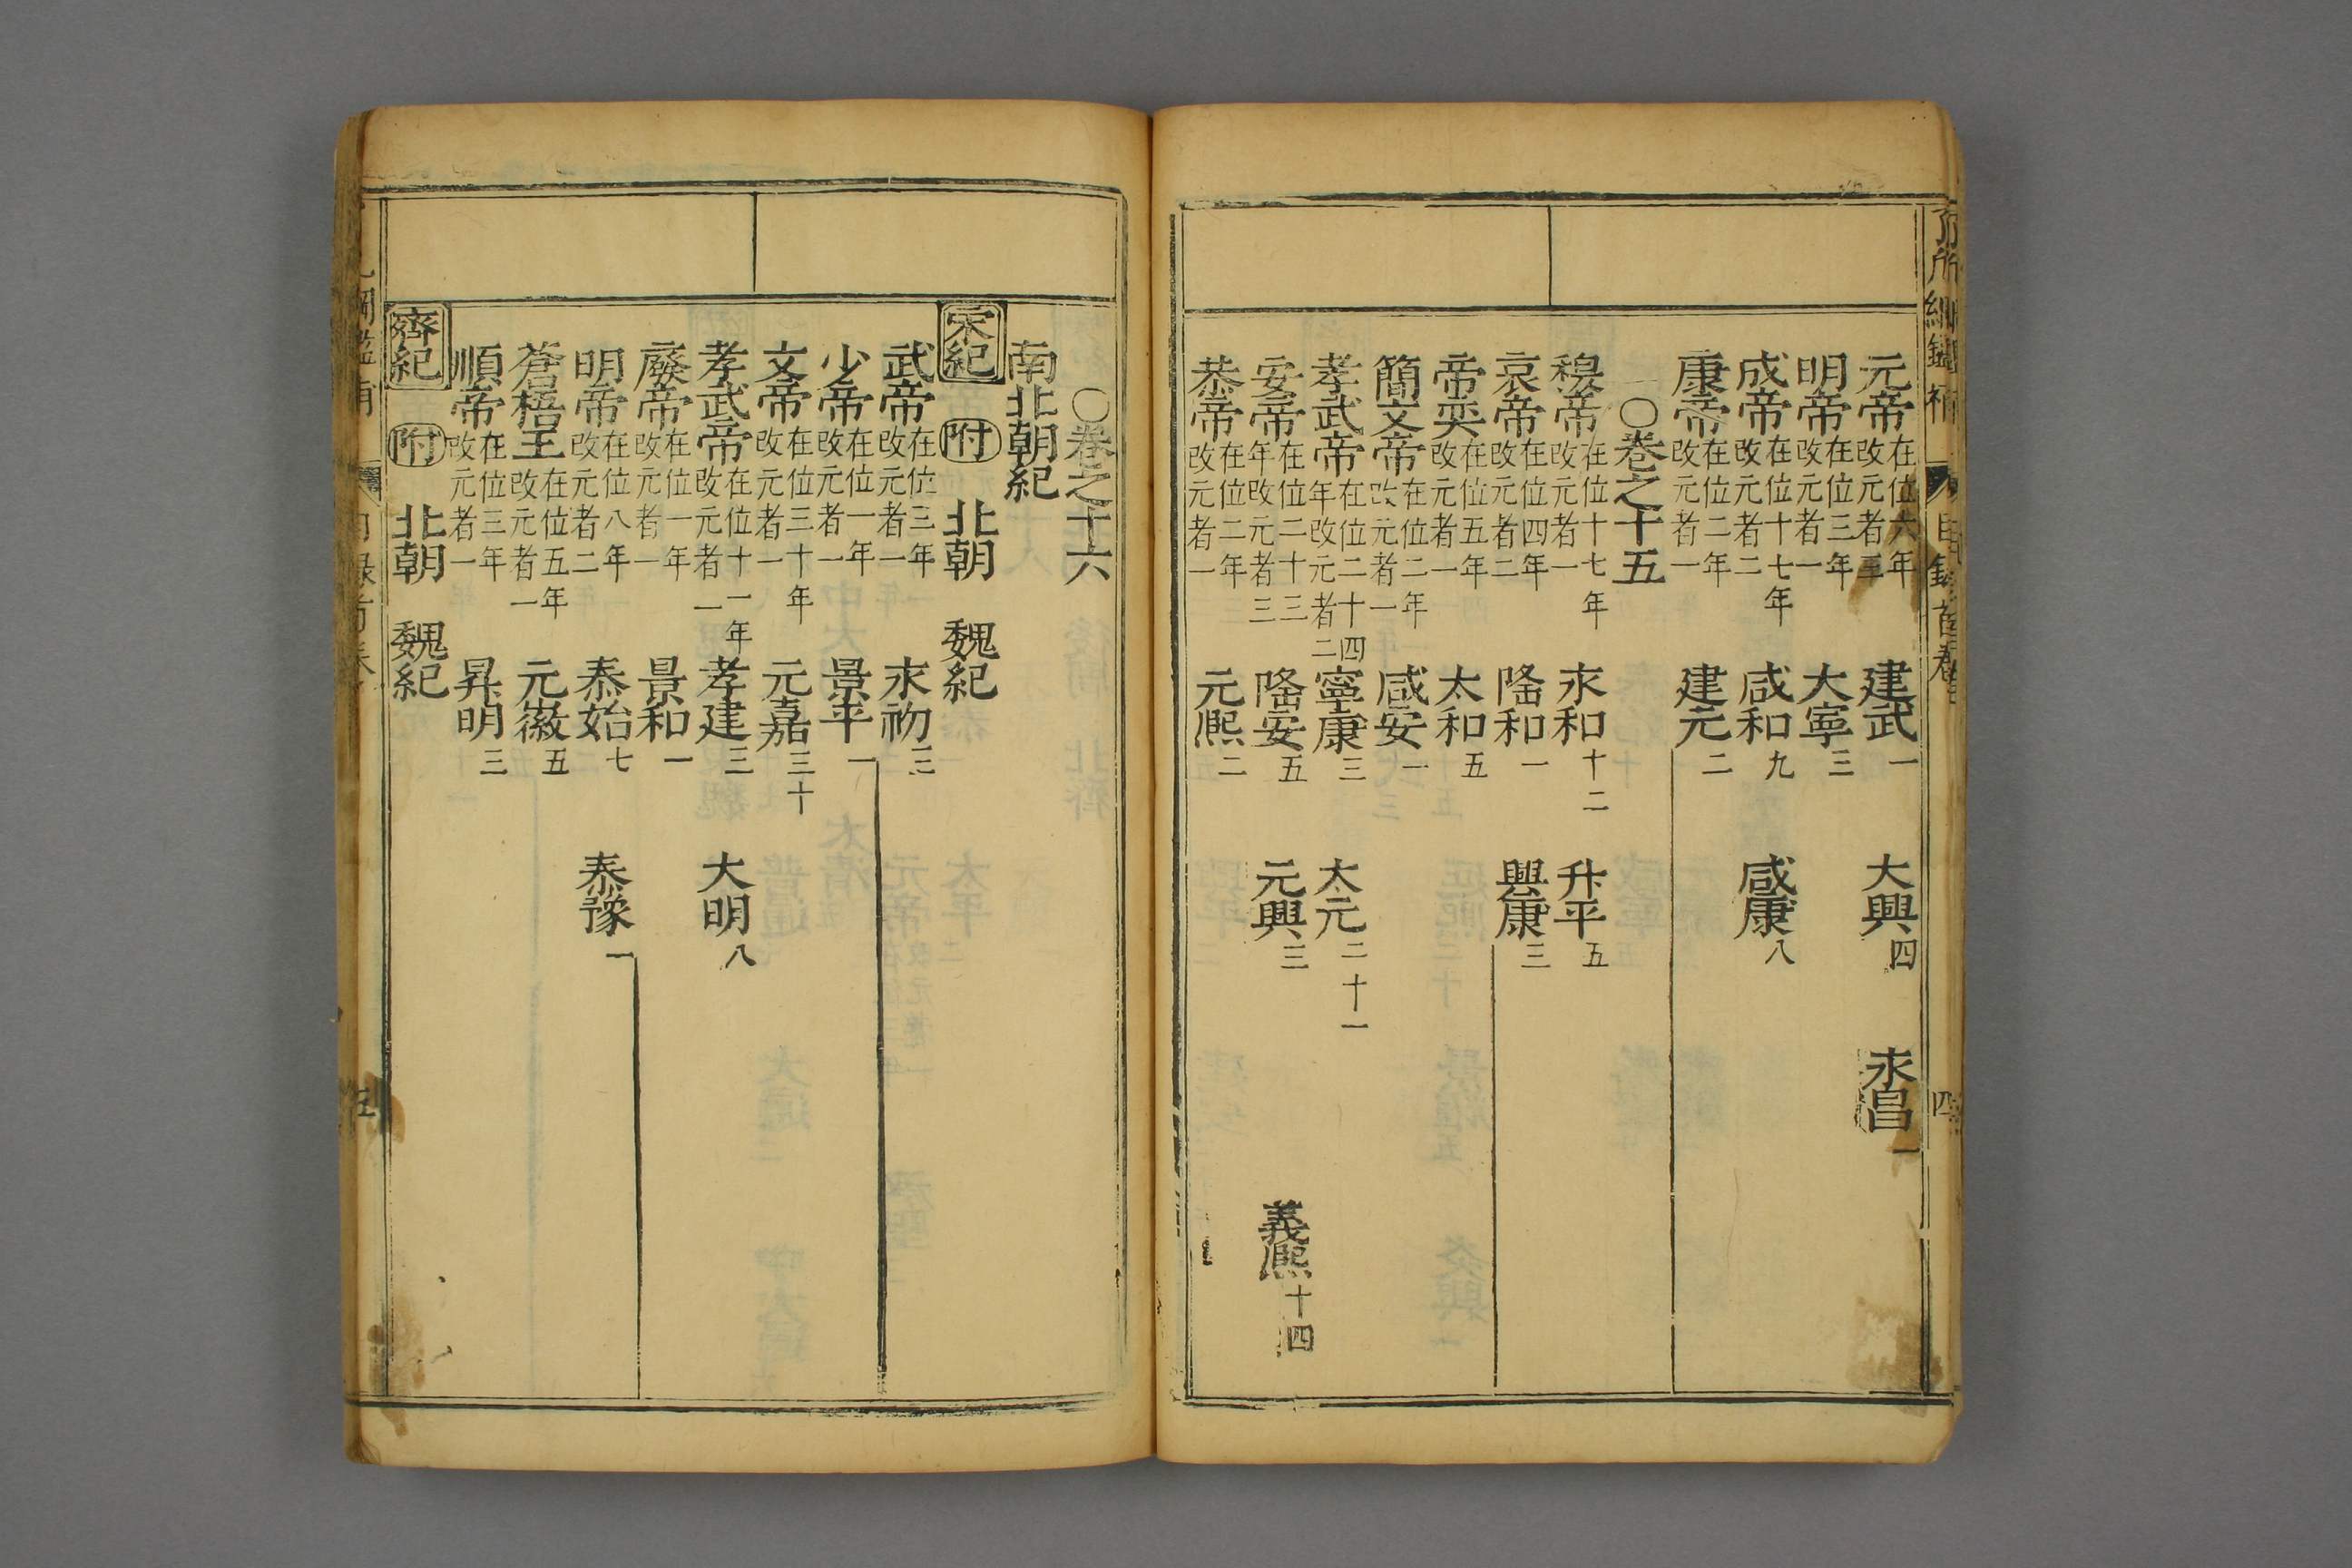 元帝在位六年改元者三 建武一 大興四 永昌一
明帝在位三年改元者一 大寧三
成帝在位十七年改元者二 咸和九 咸康八
康帝在位二年改元者一 建元二
○卷之十五
穆帝在位十七年改元者一 永和十二 升平五
哀帝在位四年改元者二 隆和一 興寧三
帝奕在位五年改元者一 太和五
簡文帝在位二年改元者一 咸安一
孝武帝在位二十四年改元者二 寧康三 太元二十一
安帝在位二十三年改元者三 隆安五 元興三 義熙十四
恭帝在位二年改元者一 元熙二
○卷之十六
南北朝紀
宋紀 附 北朝 魏紀
武帝在位三年改元者一 永初三
少帝在位一年改元者一 景平一
文帝在位三十年改元者一 元嘉三十
孝武帝在位十一年改元者一 孝建三 大明八
廢帝在位一年改元者一 景和一
明帝在位八年改元者二 泰始七 泰豫一
蒼梧王在位五年改元者一 元徽五
順帝在位三年改元者一 昇明三
齊紀 附 北朝 魏紀